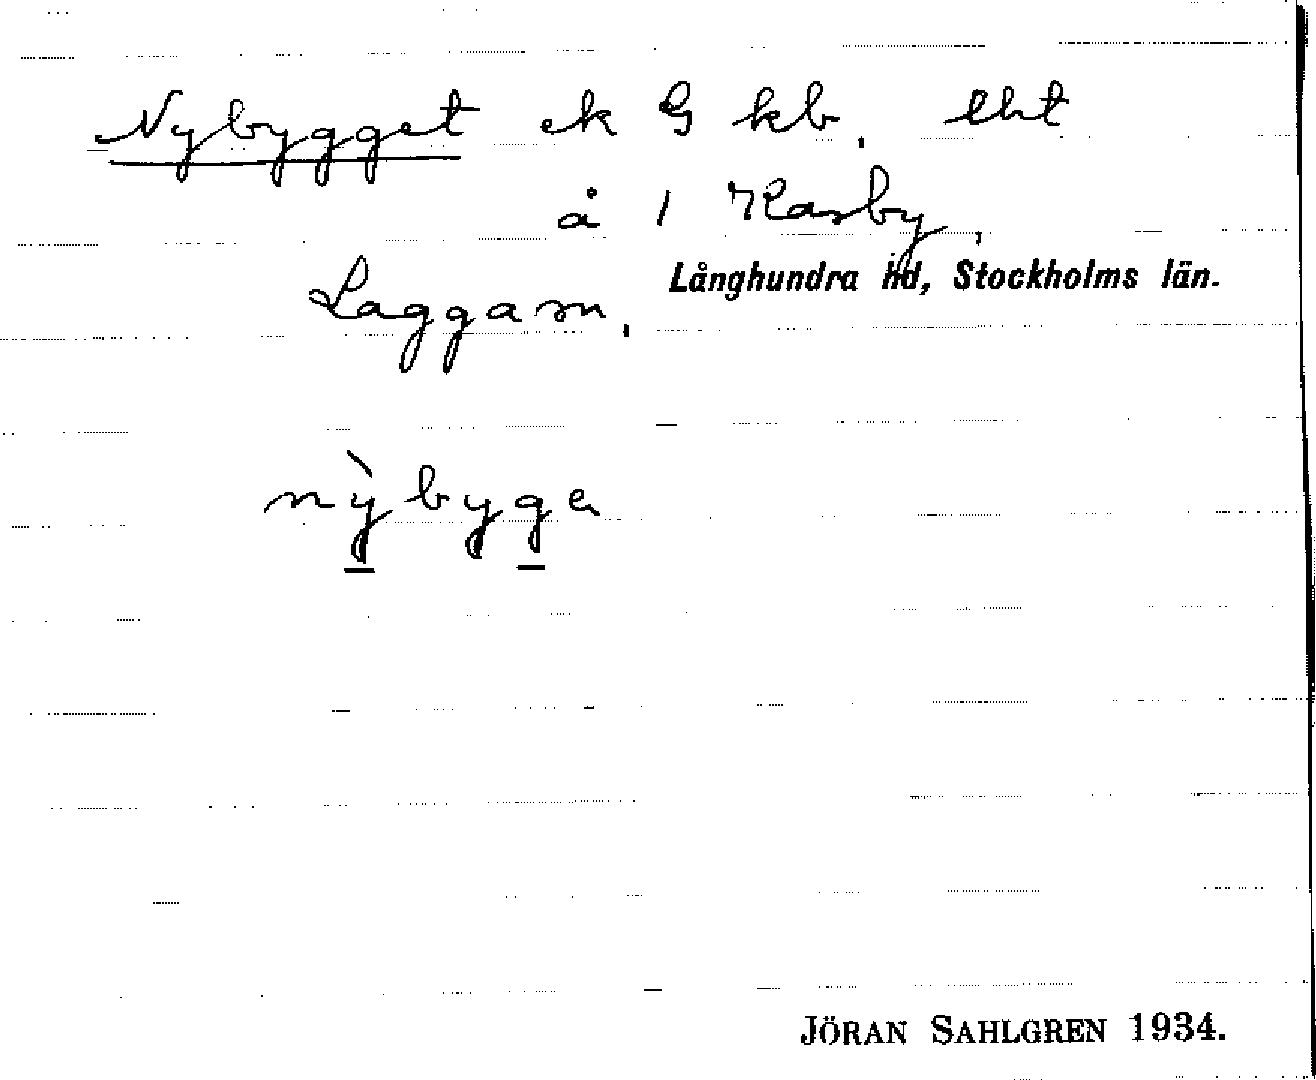 Nybygget ek G kb, lht
å 1 Kasby,
Laggam, Långhundra hd, Stockholms län.
nỳbyge
JÖRAN SAHLGREN 1934.